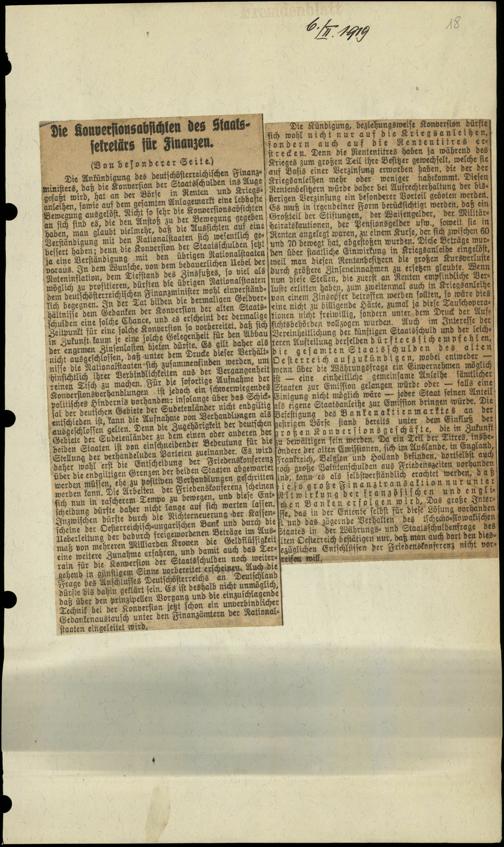 Fremdenblatt
6./II. 1919
18
Die Konversionsabsichten des Staats-
sekretärs für Finanzen.
(Von besonderer Seite.)
Die Ankündigung des deutschösterreichischen Finanz-
ministers, daß die Konversion der Staatsschulden ins Auge
gefaßt wird, hat an der Börse in Renten und Kriegs-
anleihen, sowie auf dem gesamten Anlagemarkt eine lebhafte
Bewegung ausgelöst. Nicht so sehr die Konversionsabsichten
an sich sind es, die den Anstoß zu der Bewegung gegeben
haben, man glaubt vielmehr, daß die Aussichten auf eine
Verständigung mit den Nationalstaaten sich wesentlich ge-
bessert haben; denn die Konversion der Staatsschulden setzt
ja eine Verständigung mit den übrigen Nationalstaaten
voraus. In dem Wunsche, von dem bedauerlichen Uebel der
Noteninflation, dem Tiefstand des Zinsfußes, so viel als
möglich zu profitieren, dürften die übrigen Nationalstaaten
dem deutschösterreichischen Finanzminister wohl einverständ-
lich begegnen. In der Tat bilden die dermaligen Geldver-
hältnisse dem Gedanken der Konversion der alten Staats-
schulden eine solche Chance, und es erscheint der dermalige
Zeitpunkt für eine solche Konversion so vorbereitet, daß sich
in Zukunft kaum je eine solche Gelegenheit für den Abbau
der enormen Zinsenlasten bieten dürfte. Es gilt daher als
nicht ausgeschlossen, daß unter dem Drucke dieser Verhält-
nisse die Nationalstaaten sich zusammenfinden werden, um
hinsichtlich ihrer Verbindlichkeiten aus der Vergangenheit
reinen Tisch zu machen. Für die sofortige Aufnahme der
Konversionsverhandlungen ist jedoch ein schwerwiegendes
politisches Hindernis vorhanden: insolange über das Schick-
sal der deutschen Gebiete der Sudetenländer nicht endgiltig
entschieden ist, kann die Aufnahme von Verhandlungen als
ausgeschlossen gelten. Denn die Zugehörigkeit der deutschen
Gebiete der Sudetenländer zu dem einen oder anderen der
beiden Staaten ist von einschneidender Bedeutung für die
Stellung der verhandelnden Parteien zueinander. Es wird
daher wohl erst die Entscheidung der Friedenskonferenz
über die endgiltigen Grenzen der beiden Staaten abgewartet
werden müssen, ehe zu positiven Verhandlungen geschritten
werden kann. Die Arbeiten der Friedenskonferenz scheinen
sich nun in rascherem Tempo zu bewegen, und diese Ent-
scheidung dürfte daher nicht lange auf sich warten lassen.
Inzwischen dürfte durch die Nichterneuerung der Kassen-
scheine der Oesterreichisch-ungarischen Bank und durch die
Ueberleitung der dadurch freigewordenen Beträge im Aus-
maß von mehreren Milliarden Kronen die Geldflüssigkeit
eine weitere Zunahme erfahren, und damit auch das Ter-
rain für die Konversion der Staatsschulden noch weiter-
gehend in günstigem Sinne vorbereitet erscheinen. Auch die
Frage des Anschlusses Deutschösterreichs an Deutschland
dürfte bis dahin geklärt sein. Es ist deshalb nicht unmöglich,
daß über den prinzipiellen Vorgang und die einzuschlagende
Technik bei der Konversion jetzt schon ein unverbindlicher
Gedankenaustausch unter den Finanzämtern der National-
staaten eingeleitet wird.
Die Kündigung, beziehungsweise Konversion dürfte
sich wohl nicht nur auf die Kriegsanleihen,
sondern auch auf die Rententitres er-
strecken. Denn die Rententitres haben ja während des
Krieges zum großen Teil ihre Besitzer gewechselt, welche sie
auf Basis einer Verzinsung erworben haben, die der der
Kriegsanleihen mehr oder weniger nahekommt. Diesen
Rentenbesitzern würde daher bei Aufrechterhaltung der bis-
herigen Verzinsung ein besonderer Vorteil geboten werden.
Es muß in irgendeiner Form berücksichtigt werden, daß ein
Großteil der Stiftungen, der Waisengelder, der Militär-
heiratskautionen, der Pensionsgelder usw., soweit sie in
Renten angelegt waren, zu einem Kurse, der sich zwischen 60
und 70 bewegt hat, abgestoßen wurden. Diese Beträge wur-
den über sanfte Einwirkung in Kriegsanleihe eingetauscht,
weil man diesen Rentenbesitz die großen Kursverluste
durch größere Zinseneinnahmen zu ersetzen glaubte. Wenn
nun diese Stellen, die zuerst an Renten empfindliche Ver-
luste erlitten haben, zum zweitenmal auch in Kriegsanleihe
von einem Zinsopfer betroffen werden sollten, so wäre das
eine nicht zu billigende Härte, zumal ja diese Tauschopera-
tionen nicht freiwillig, sondern unter dem Druck der Auf-
sichtsbehörden vollzogen wurden. Auch im Interesse der
Vereinheitlichung der künftigen Staatsschuld und der leich-
teren Austeilung derselben dürfte es sich empfehlen,
die gesamten Staatsschulden des alten
Oesterreich aufzukündigen, wobei entweder —
wenn über die Währungsfrage ein Einvernehmen möglich
ist — eine einheitliche gemeinsame Anleihe sämtlicher
Staaten zur Emission gelangen würde oder — falls eine
Einigung nicht möglich wäre — jeder Staat seinen Anteil
als eigene Staatsanleihe zur Emission bringen würde. Die
Befestigung des Bankenaktienmarktes an der
hiesigen Börse stand bereits unter dem Einfluß der
großen Konversionsgeschäfte, die in Zukunft
zu bewältigen sein werden. Da ein Teil der Titres, insbe-
sondere der alten Emissionen, sich im Auslande, in England,
Frankreich, Belgien und Holland befinden, dortselbst auch
noch große Valutenschulden aus Friedenszeiten vorhanden
sind, kann es als selbstverständlich erachtet werden, daß
diese große Finanztransaktion nur unter
Mitwirkung der französischen und engli-
schen Banken erfolgen wird. Das große Inter-
esse, das in der Entente selbst für diese Lösung vorhanden
und das zögernde Verhalten des tschecho-slowakischen
Staates in der Währungs- und Staatsschuldenfrage
alten Oesterreich bestätigen nur, daß man auch dort den dies-
bezüglichen Entschlüssen der Friedenskonferenz nicht vor-
greifen will.